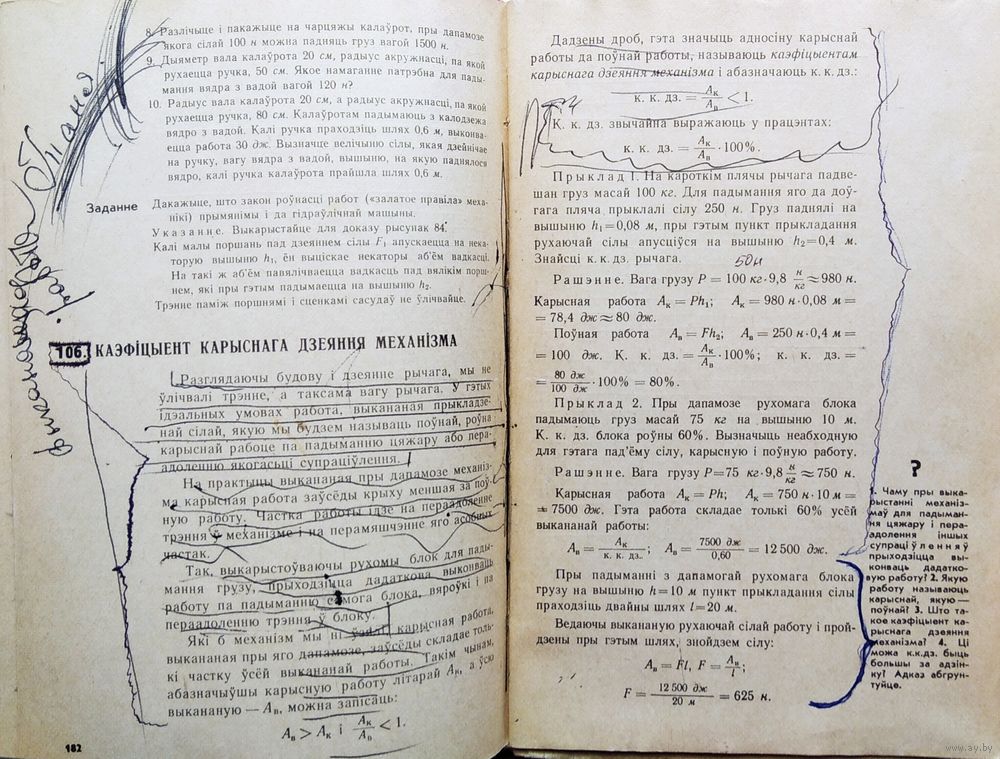 8. Разлічыце і пакажыце на чарцяжы калаўрот, пры дапамозе
якога сілай 100 н можна падняць груз вагой 1500 н.
9. Дыяметр вала калаўрота 20 см, радыус акружнасці, па якой
рухаецца ручка, 50 см. Якое намаганне патрэбна для пады-
мання вядра з вадой вагой 120 н?
10. Радыус вала калаўрота 20 см, а радыус акружнасці, па якой
рухаецца ручка, 80 см. Калаўротам падымаюць з калодзежа
вядро з вадой. Калі ручка праходзіць шлях 0,6 м, выконва-
ецца работа 30 дж. Вызначце велічыню сілы, якая дзейнічае
на ручку, вагу вядра з вадой, вышыню, на якую паднялося
вядро, калі ручка калаўрота прайшла шлях 0,6 м.
Заданне Дакажыце, што закон роўнасці работ («залатое правіла» меха-
нікі) прымянімы і да гідраўлічнай машыны.
Указанне. Выкарыстайце для доказу рысунак 84.
Калі малы поршань пад дзеяннем сілы F₁ апускаецца на нека-
торую вышыню h₁, ён выціскае некаторы аб'ём вадкасці.
На такі ж аб'ём павялічваецца вадкасць пад вялікім порш-
нем, які пры гэтым падымаецца на вышыню h₂.
Трэнне паміж поршнямі і сценкамі сасудаў не ўлічвайце.
106. КАЭФІЦЫЕНТ КАРЫСНАГА ДЗЕЯННЯ МЕХАНІЗМА
Разглядаючы будову і дзеянне рычага, мы не
ўлічвалі трэнне, а таксама вагу рычага. У гэтых
ідэальных умовах работа, выкананая прыкладзе-
най сілай, якую мы будзем называць поўнай, роўна
карыснай рабоце па падыманню цяжару або пера-
адоленню якогасьці супраціўлення.
На практыцы выкананая пры дапамозе механіз-
ма карысная работа заўсёды крыху меншая за поў-
ную работу. Частка работы ідзе на пераадоленне
трэння ў механізме і на перамяшчэнне яго асобных
частак.
Так, выкарыстоўваючы рухомы блок для пады-
мання грузу, прыходзіцца дадаткова выконваць
работу па падыманню самога блока, вяроўкі і па
пераадоленню трэння ў блоку.
Які б механізм мы ні ўзялі, карысная работа,
выкананая пры яго дапамозе, заўсёды складае толь-
кі частку ўсёй выкананай работы. Такім чынам,
абазначыўшы карысную работу літарай Aк, а ўсю
выкананую — Aв, можна запісаць:
Aв > Aк і Aк/Aв < 1.
182
Дадзены дроб, гэта значыць адносіну карыснай
работы да поўнай работы, называюць каэфіцыентам
карыснага дзеяння механізма і абазначаюць к. к. дз.:
к. к. дз. = Aк/Aв < 1.
К. к. дз. звычайна выражаюць у працэнтах:
к. к. дз. = Aк/Aв · 100%.
Прыклад 1. На кароткім плячы рычага падве-
шан груз масай 100 кг. Для падымання яго да доў-
гага пляча прыклалі сілу 250 н. Груз паднялі на
вышыню h₁=0,08 м, пры гэтым пункт прыкладання
рухаючай сілы апусціўся на вышыню h₂=0,4 м.
Знайсці к. к. дз. рычага.
50н
Рашэнне. Вага грузу P = 100 кг·9,8 н/кг ≈ 980 н.
Карысная работа Aк = Ph₁; Aк = 980 н·0,08 м =
= 78,4 дж ≈ 80 дж.
Поўная работа Aв = Fh₂; Aв = 250 н·0,4 м =
= 100 дж. К. к. дз. = Aк/Aв · 100%; к. к. дз. =
= 80 дж/100 дж · 100% = 80%.
Прыклад 2. Пры дапамозе рухомага блока
падымаюць груз масай 75 кг на вышыню 10 м.
К. к. дз. блока роўны 60%. Вызначыць неабходную
для гэтага пад'ёму сілу, карысную і поўную работу.
Рашэнне. Вага грузу P=75 кг·9,8 н/кг ≈ 750 н.
Карысная работа Aк = Ph; Aк = 750 н·10 м =
= 7500 дж. Гэта работа складае толькі 60% усёй
выкананай работы:
Aв = Aк/к. к. дз.; Aв = 7500 дж/0,60 = 12 500 дж.
Пры падыманні з дапамогай рухомага блока
грузу на вышыню h=10 м пункт прыкладання сілы
праходзіць двайны шлях l=20 м.
Ведаючы выкананую рухаючай сілай работу і прой-
дзены пры гэтым шлях, знойдзем сілу:
Aв = Fl, F = Aв/l;
F = 12 500 дж/20 м = 625 н.
?
1. Чаму пры выка-
рыстанні механіз-
маў для падыман-
ня цяжару і пера-
адолення іншых
супраціўленняў
прыходзіцца вы-
конваць дадатко-
вую работу? 2. Якую
работу называюць
карыснай, якую —
поўнай? 3. Што та-
кое каэфіцыент ка-
рыснага дзеяння
механізма? 4. Ці
можа к.к.дз. быць
большы за адзін-
ку? Адказ абгрун-
туйце.
www.ay.by